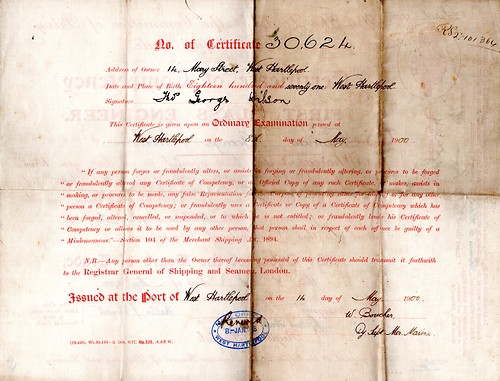 No. of Certificate 30.624
Address of Owner 14 Mary Street, West Hartlepool.
Date and Place of Birth Eighteen hundred and seventy one. West Hartlepool
Signature Thos George
This Certificate is given upon an Ordinary Examination passed at
West Hartlepool on the 8th day of May 1900
"If any person forges or fraudulently alters, or assists in forging or fraudulently altering, or procures to be forged
"or fraudulently altered any Certificate of Competency, or an Official Copy of any such Certificate, or makes, assists in
"making, or procures to be made, any false Representation for the purpose of procuring either for himself or for any other
"person a Certificate of Competency; or fraudulently uses a Certificate or Copy of a Certificate of Competency which has
"been forged, altered, cancelled, or suspended, or to which he is not entitled; or fraudulently lends his Certificate of
"Competency or allows it to be used by any other person, that person shall in respect of each offence be guilty of a
"Misdemeanour."—Section 104 of the Merchant Shipping Act, 1894.
N.B.—Any person other than the Owner thereof becoming possessed of this Certificate should transmit it forthwith
to the Registrar General of Shipping and Seamen, London.
Issued at the Port of West Hartlepool on the 14 day of May 1900.
Renewed
WEST HARTLEPOOL
W. Boucher
Dy Supt Mer. Marine